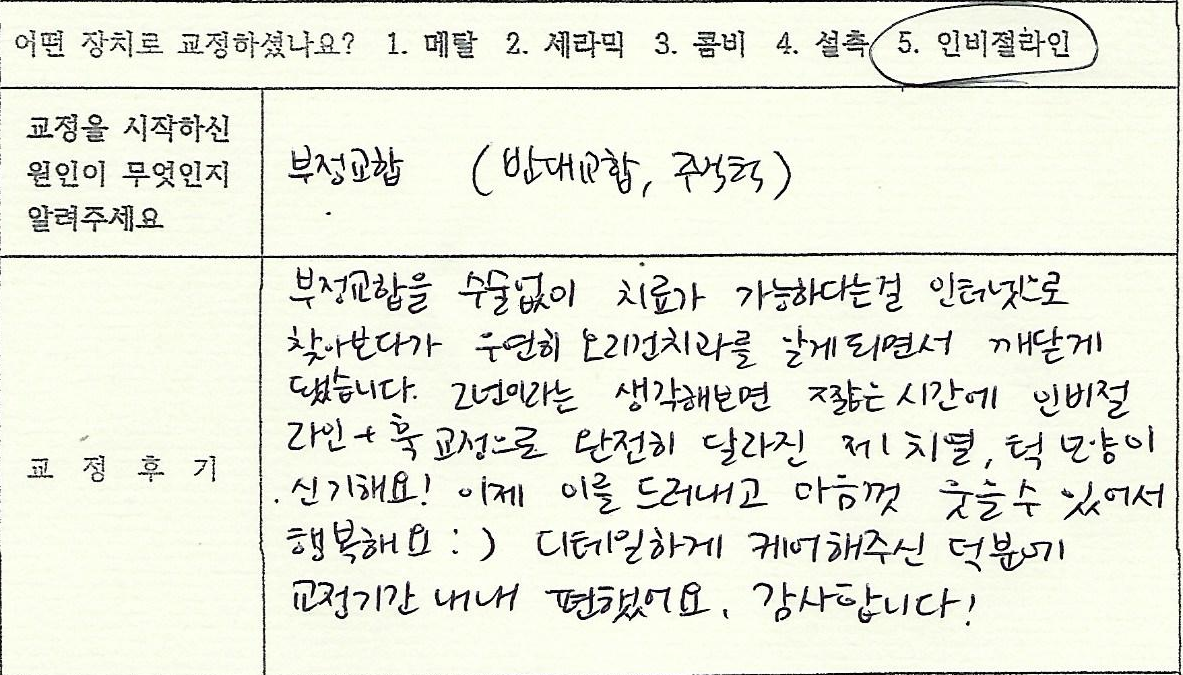 어떤 장치로 교정하셨나요? 1. 메탈 2. 세라믹 3. 콤비 4. 설측 5. 인비절라인
교정을 시작하신
원인이 무엇인지
알려주세요
부정교합 (반대교합, 주걱턱)
교 정 후 기
부정교합을 수술없이 치료가 가능하다는걸 인터넷으로
찾아보다가 우연히 오리건치과를 알게되면서 깨닫게
됐습니다. 2년이라는 생각해보면 짧은시간에 인비절
라인 + 훅 교정으로 완전히 달라진 제 치열, 턱 모양이
신기해요! 이제 이를 드러내고 마음껏 웃을수 있어서
행복해요 : ) 디테일하게 케어해주신 덕분에
교정기간 내내 편했어요. 감사합니다!